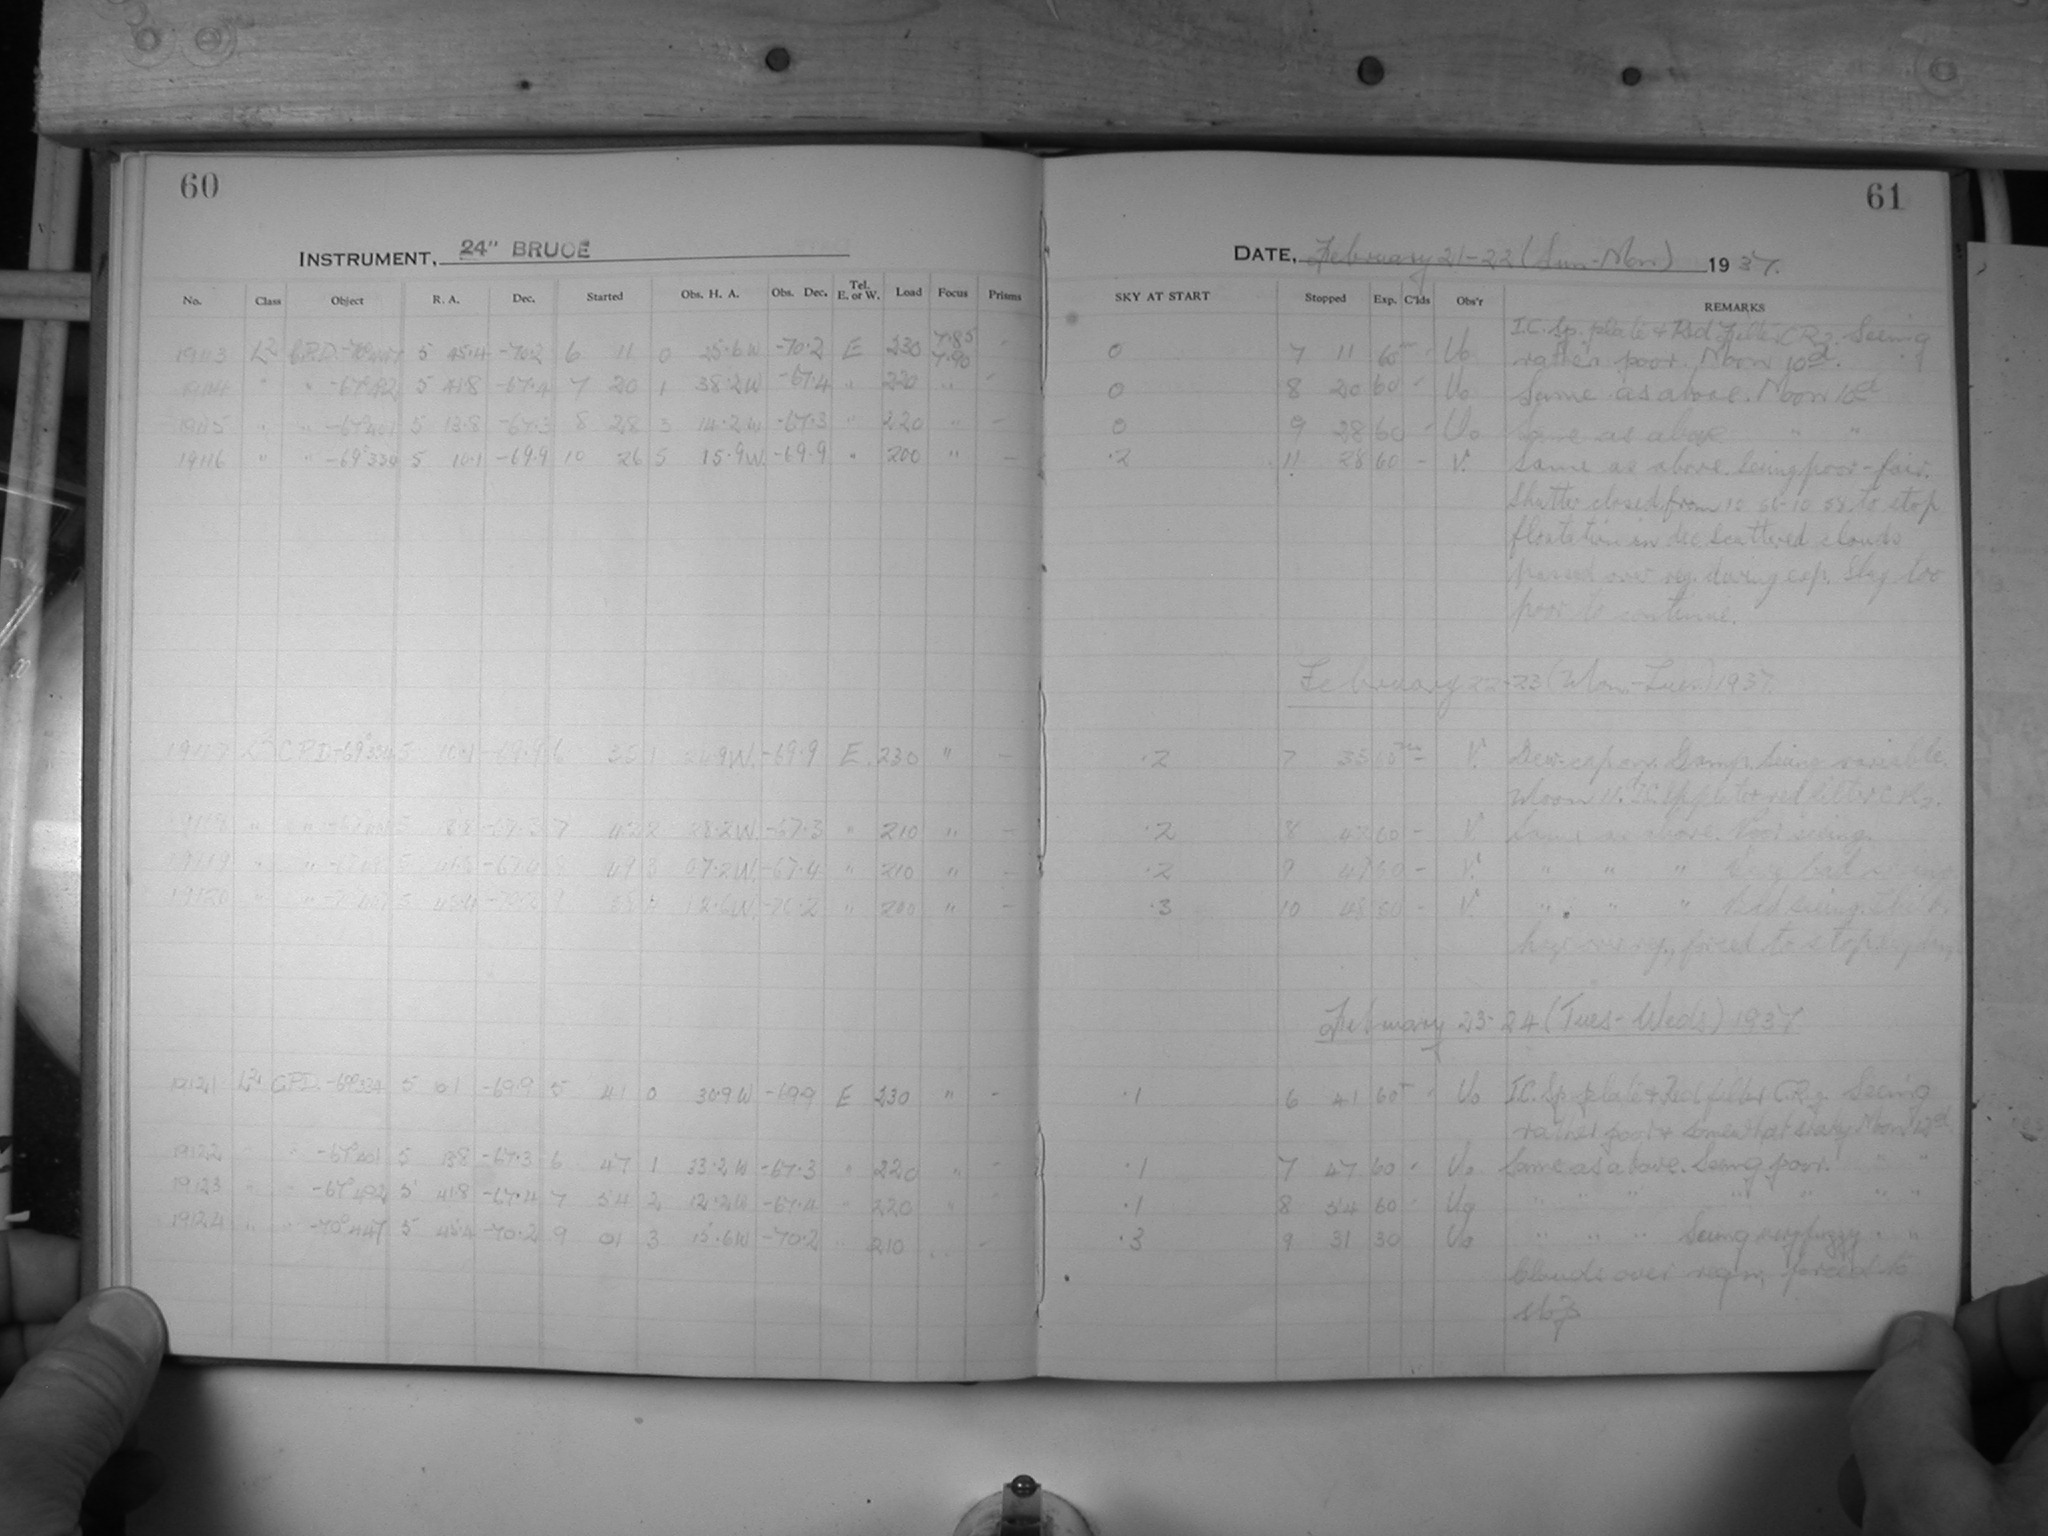 60
INSTRUMENT, 24" BRUCE
No. Class Object R. A. Dec. Started Obs. H. A. Obs. Dec. Tel. E. or W. Load Focus Prisms
19113 5 45.4 -70.2 6 11 0 25.6 W -70.2 E 230 7.85 7.90
19114 " " -67°492 5 41.8 -67.4 7 20 1 38.2 W -67.4 " 220 "
19115 " " -67°401 5 13.8 -67.3 8 28 3 14.2 W -67.3 " 220 " -
19116 " " -69°334 5 10.1 -69.9 10 26 5 15.9 W. -69.9 " 200 " -
19117 C.P.D. -69°334 5 10.1 -69.9 6 35 1 W. -69.9 E 230 " -
19118 " " 5 13.8 -67.3 7 2 28.2 W. -67.3 " 210 " -
19119 " " 5 41.8 -67.4 8 49 3 07.2 W. -67.4 " 210 " -
19120 " " 5 45.4 -70.2 9 W. -70.2 " 200 " -
19121 C.P.D. -69°334 5 -69.9 5 41 0 30.9 W -69.9 E 230 " -
19122 " -67°401 5 13.8 -67.3 6 47 1 33.2 W -67.3 " 220 "
19123 " -67°492 5 41.8 -67.4 7 54 2 12.2 W -67.4 220 "
19124 " " -70°447 5 45.4 -70.2 9 01 3 15.6 W -70.2 210 -
61
DATE, February 21-22 (Sun-Mon) 1937.
SKY AT START Stopped Exp. C'lds Obs'r REMARKS
I.C. Sp. plate & Red filter C.R2. Seeing
0 7 11 60 Uo rather poor. Moon 10d.
0 8 20 60 Uo Same as above. Moon 10d
0 9 28 60 Uo Same as above " "
.2 11 28 60 - V. Same as above. Seeing poor-fair.
Shutter closed from 10 56-10 58 to stop
floatation in dec. Scattered clouds
passed over reg. during exp. Sky too
poor to continue.
February 22-23 (Mon.-Tues.) 1937.
.2 7 35 60 - V. Dew-cap on. Damp. Seeing variable.
Moon 11. I.C. Sp. plate & red filter C.R2.
.2 8 42 60 - V. Same as above. Poor seeing.
.2 9 49 60 - V. " " " Very bad seeing
.3 10 48 50 - V. " " " Bad seeing.
over reg., forced to stop
February 23-24 (Tues-Weds) 1937
.1 6 41 60 Uo I.C. Sp. plate & Red filter C.R2. Seeing
rather poor & somewhat shaky Moon 12d.
.1 7 47 60 Uo Same as above. Seeing poor. " "
.1 8 54 60 Uo " " " " " " "
.3 9 31 30 Uo " " " Seeing very fuzzy " "
Clouds over region, forced to
stop